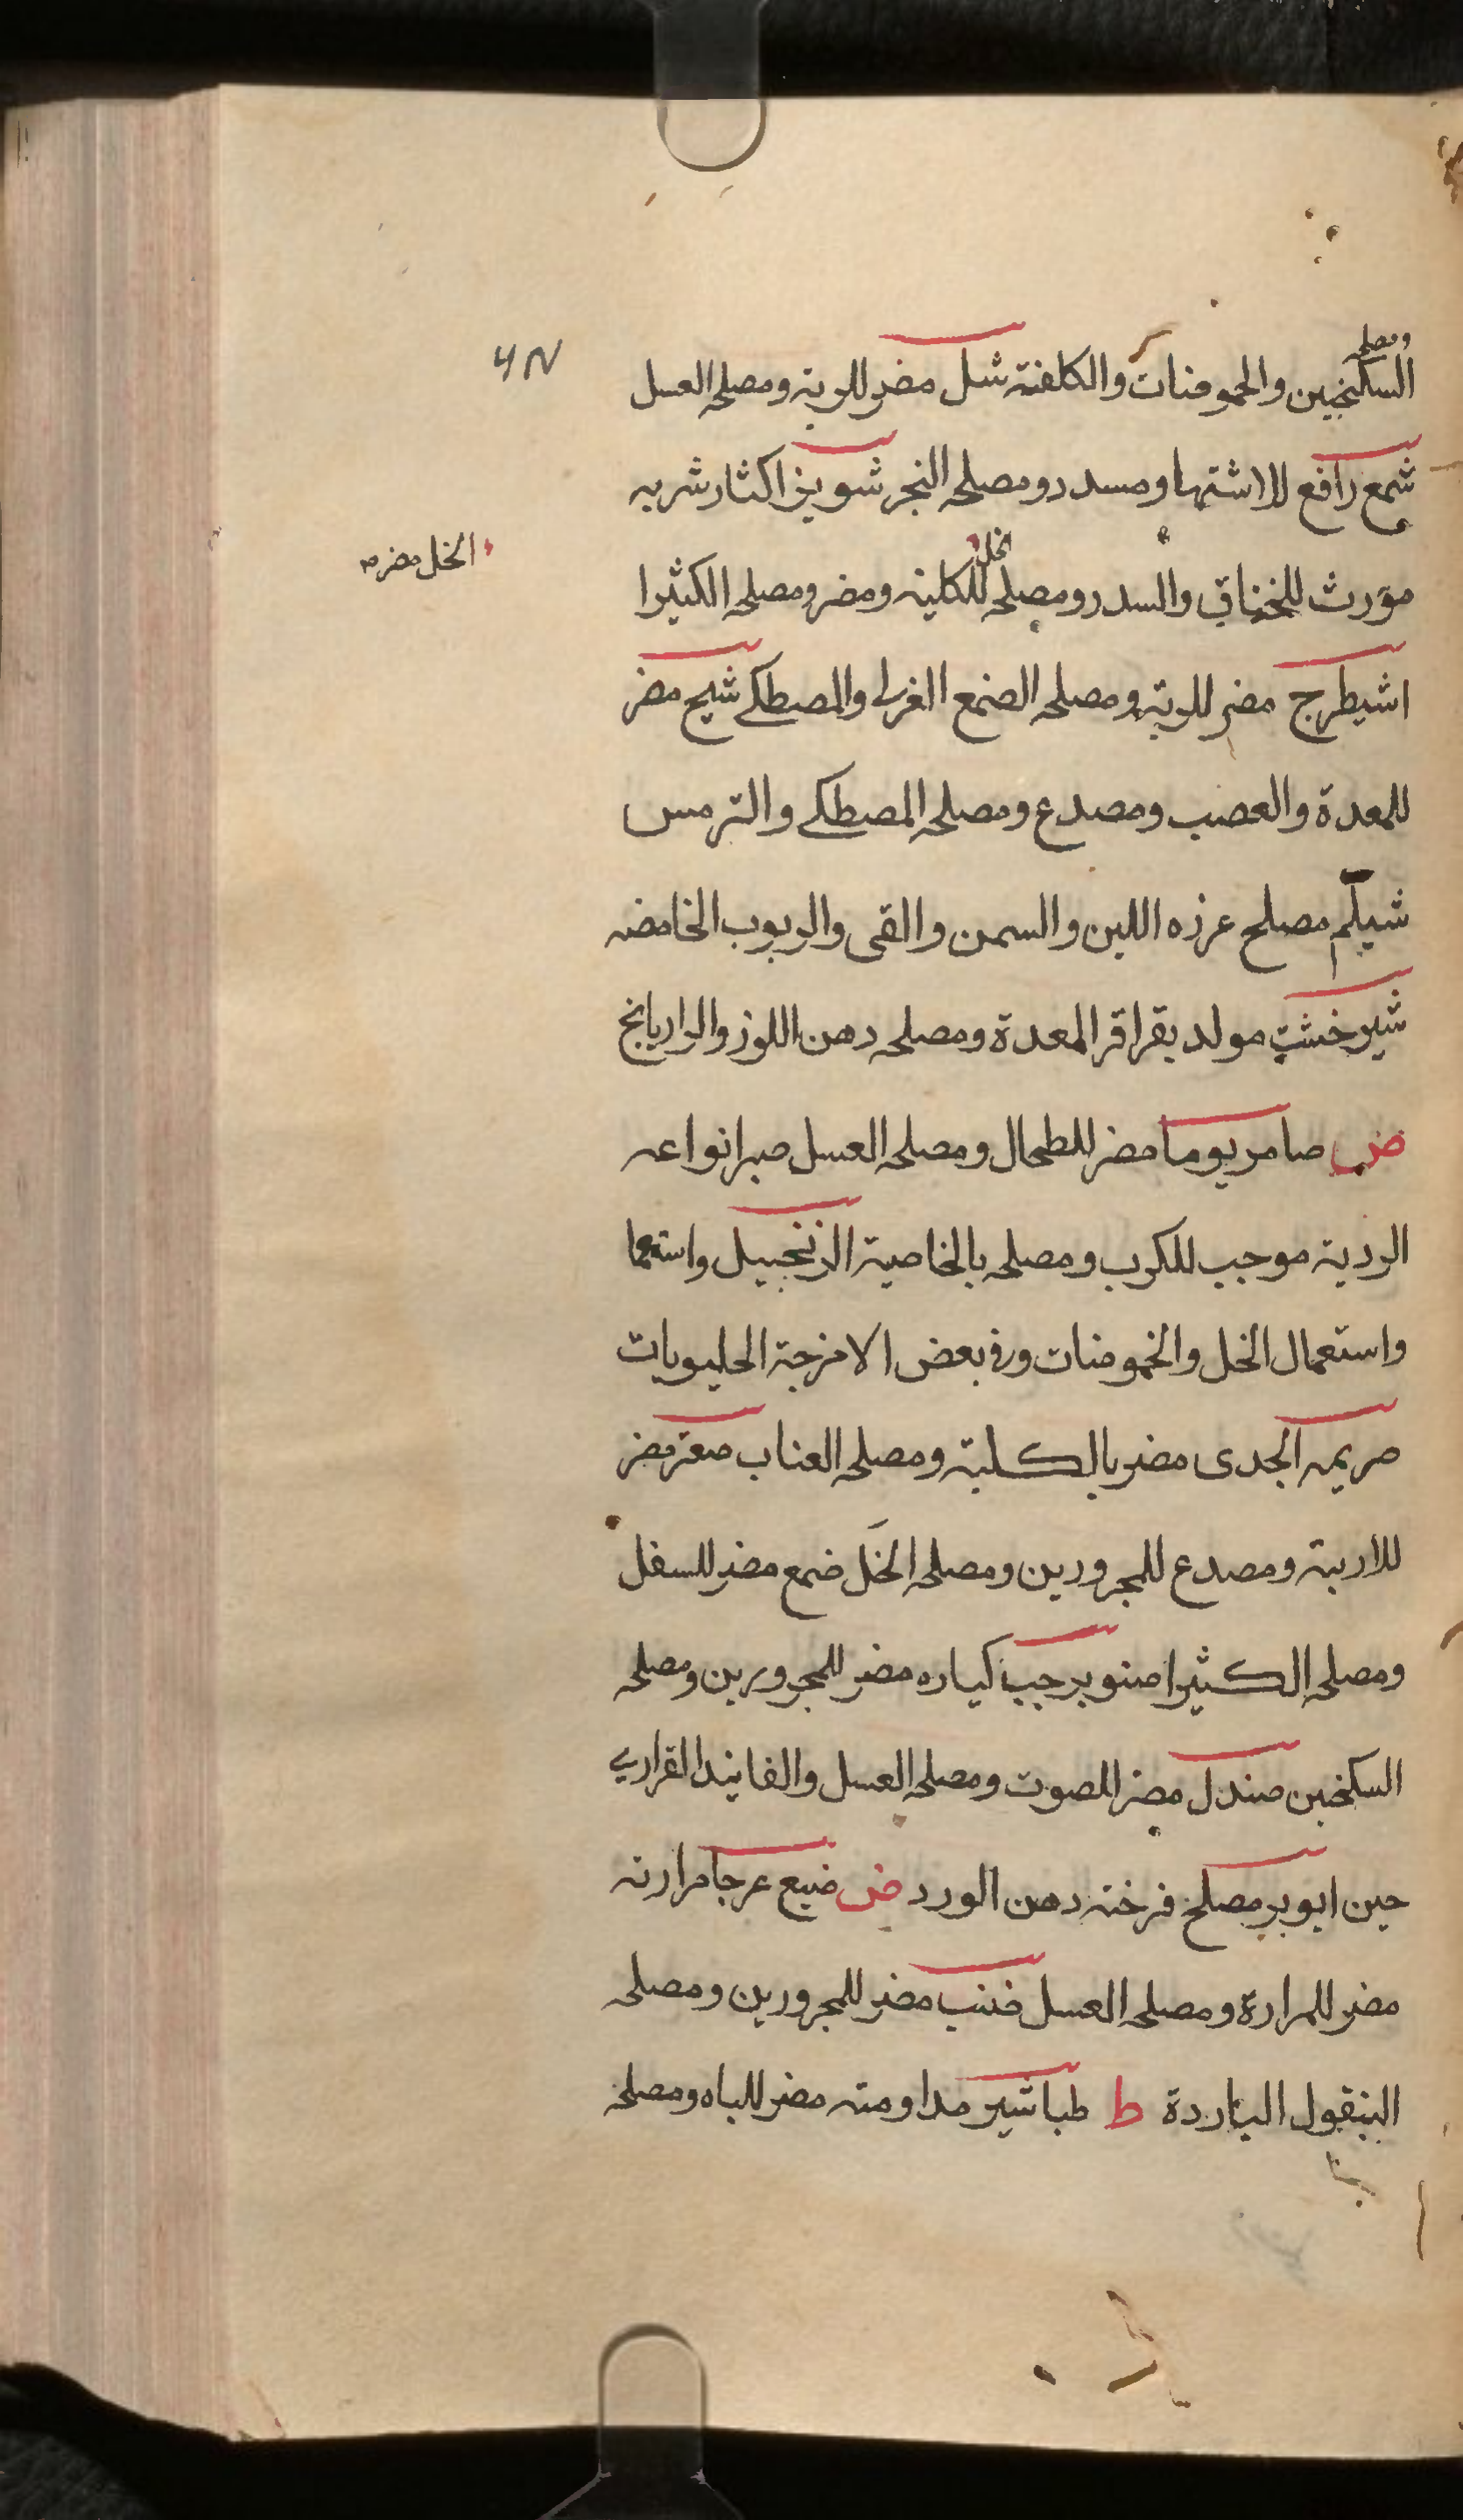 ومصلحه
السكنجبين والحموضات والكلفتة شل مضر للرية ومصلحه العسل
شمع رافع للاشتها ومسدد ومصلحه النجر شونيز اكثار شربه
مورث للخناق والسدد ومصلحه الخل للكلية ومضر ومصلحه الكثيرا
الخل مضر
اشيطرج مضر للرية ومصلحه الصمغ الغربى والمصطكے شيح مضر
للمعدة والعصب ومصدع ومصلحه المصطكے والترمس
شيلم مصلح عرزه اللبن والسمن والقى والربوب الخامضه
شيرخشت مولد بقراقر المعدة ومصلحه دهن اللوز والرازيانج
ص صامريوما مضر للطحال ومصلحه العسل صبر انواعه
الردية موجب للكرب ومصلحه بالخاصية الزنجبيل واستعما
واستعمال الخل والخموضات وفى بعض الامزجة الحليويات
صريمه الجدى مضر بالكلية ومصلحه العناب صعتر مضر
للاربية ومصدع للمجرورين ومصلحه الخَل ضمع مضر للسفل
ومصلحه الكثيرا صنوبر حب كباره مضر للمجرورين ومصلحه
السكنجبين صندل مضر للصوت ومصلحه العسل والفانيد القرارى
حين ابوبر مصلح فرخته دهن الورد ض ضبع عرجا مرارته
مضر للمرارة ومصلحه العسل ضنب مضر للمجرورين ومصلحه
البنقول الباردة ط طباشير مداومته مضر للباه ومصلحه